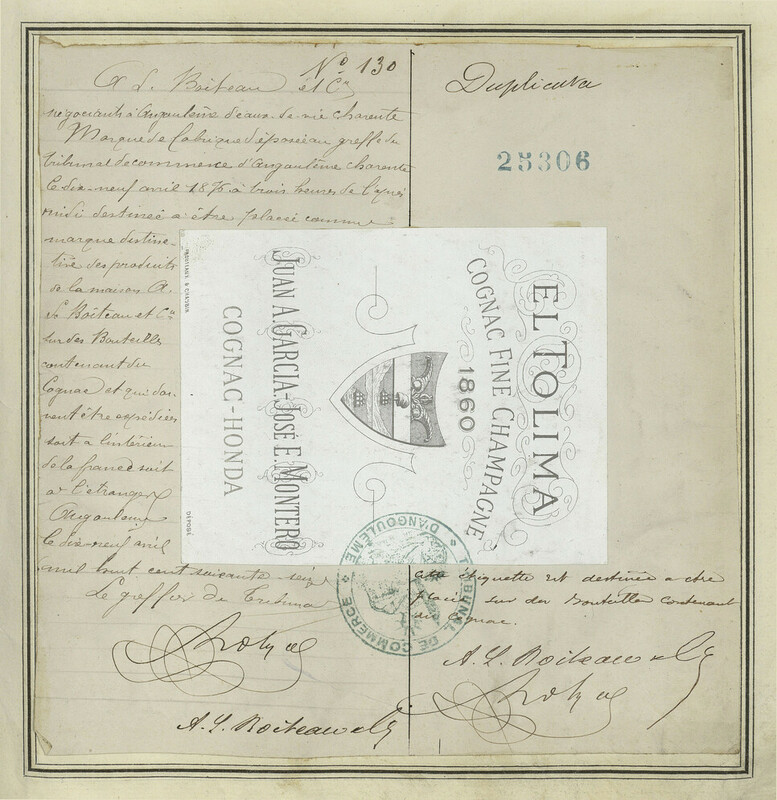 Nº 130
A L. Boiteau et Cie
négociants à Angoulême d'eaux-de-vie charente
Marque de fabrique déposée au greffe du
tribunal de commerce d'Angoulême charente
le dix-neuf avril 1876 à trois heures de l'après
midi destinée a être placée comme
marque distinc-
tive des produits
de la maison A.
L. Boiteau et Cie
sur des Bouteilles
contenant du
Cognac et qui doi-
vent être expédiées
soit a l'intérieur
de la france soit
a l'étranger
Angoulême
le dix-neuf avril
mil huit cent soixante-seize
Le greffier du Tribunal
A. L. Boiteau & Cie
Duplicata
25306
EL TOLIMA
COGNAC FINE CHAMPAGNE
1860
JUAN A. GARCIA-JOSÉ E. MONTERO
COGNAC-HONDA
DÉPOSÉ
TRIBUNAL DE COMMERCE
D'ANGOULEME
cette étiquette est destinée a être
placée sur des Bouteilles contenant
du Cognac.
A. L. Boiteau & Cie